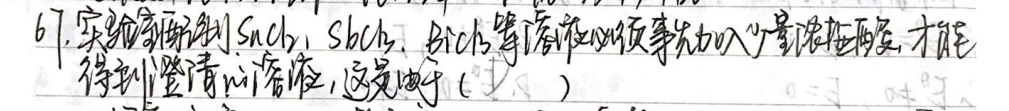 67.实验室配制SnCl₂, SbCl₃、BiCl₃等溶液必须事先加入少量浓盐酸,才能
得到澄清的溶液,这是由于(      )